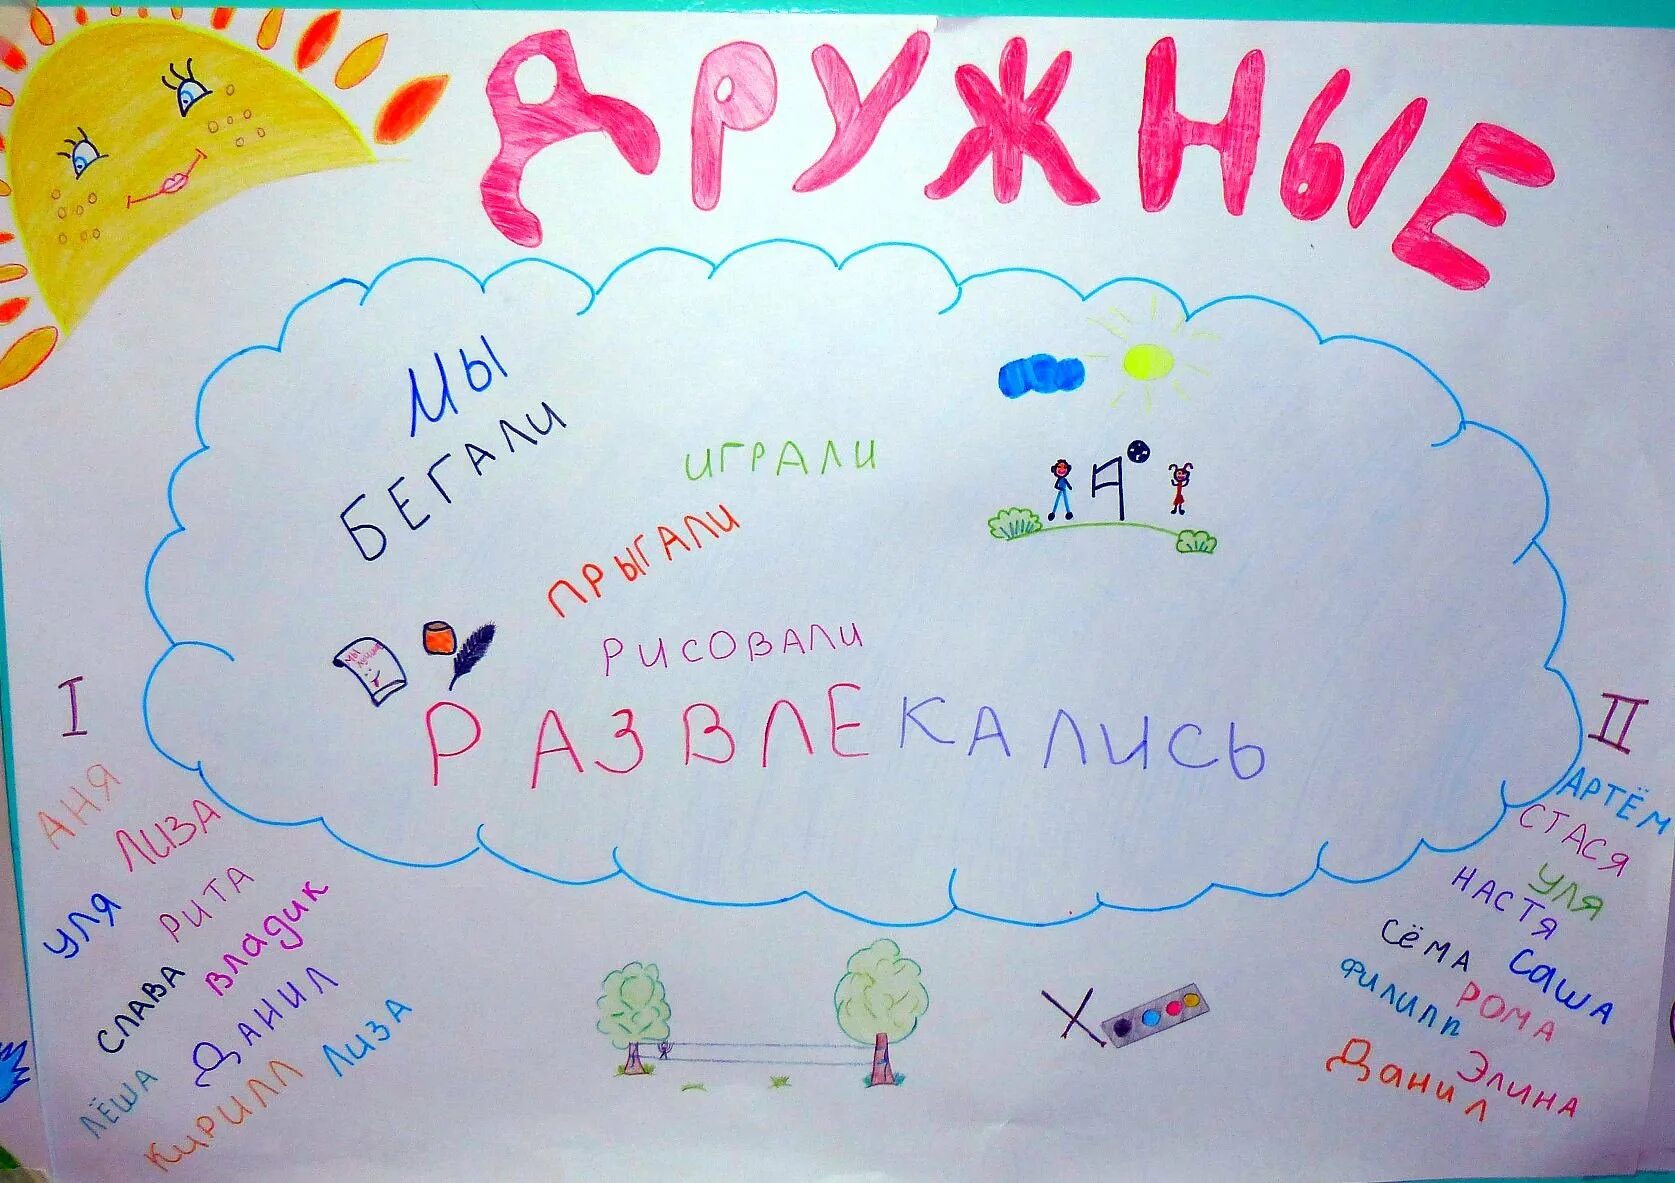 ДРУЖНЫЕ
МЫ
БЕГАЛИ
ИГРАЛИ
ПРЫГАЛИ
РИСОВАЛИ
РАЗВЛЕКАЛИСЬ
I
АНЯ
ЛИЗА
УЛЯ
РИТА
ВЛАДИК
СЛАВА
ДАНИЛ
ЛИЗА
ЛЁША
КИРИЛЛ
II
АРТЁМ
СТАСЯ
УЛЯ
НАСТЯ
САША
СЁМА
РОМА
ФИЛИПП
ЭЛИНА
ДАНИЛ